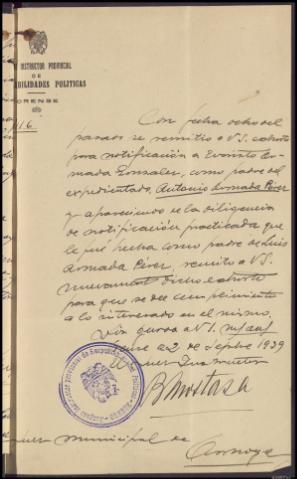 INSTRUCTOR PROVINCIAL
DE
RESPONSABILIDADES POLITICAS
ORENSE
116
Con fecha ocho del
pasado se remitio a V.S. exhorto
para notificación a Evaristo Ar-
mada Gonzalez, como padre del
expedientado, Antonio Armada Pérez
y apareciendo de la diligencia
de notificación practicada que
le fué hecha como padre de Luis
Armada Pérez, remito a V.S.
nuevamente dicho exhorto
para que se dee cumplimiento
a lo interesado en el mismo.
Dios guarde a V.S. m/ as/
Orense a 2 de Sepbre 1939
El Juez Instructor
Juez Municipal de
Arnoya